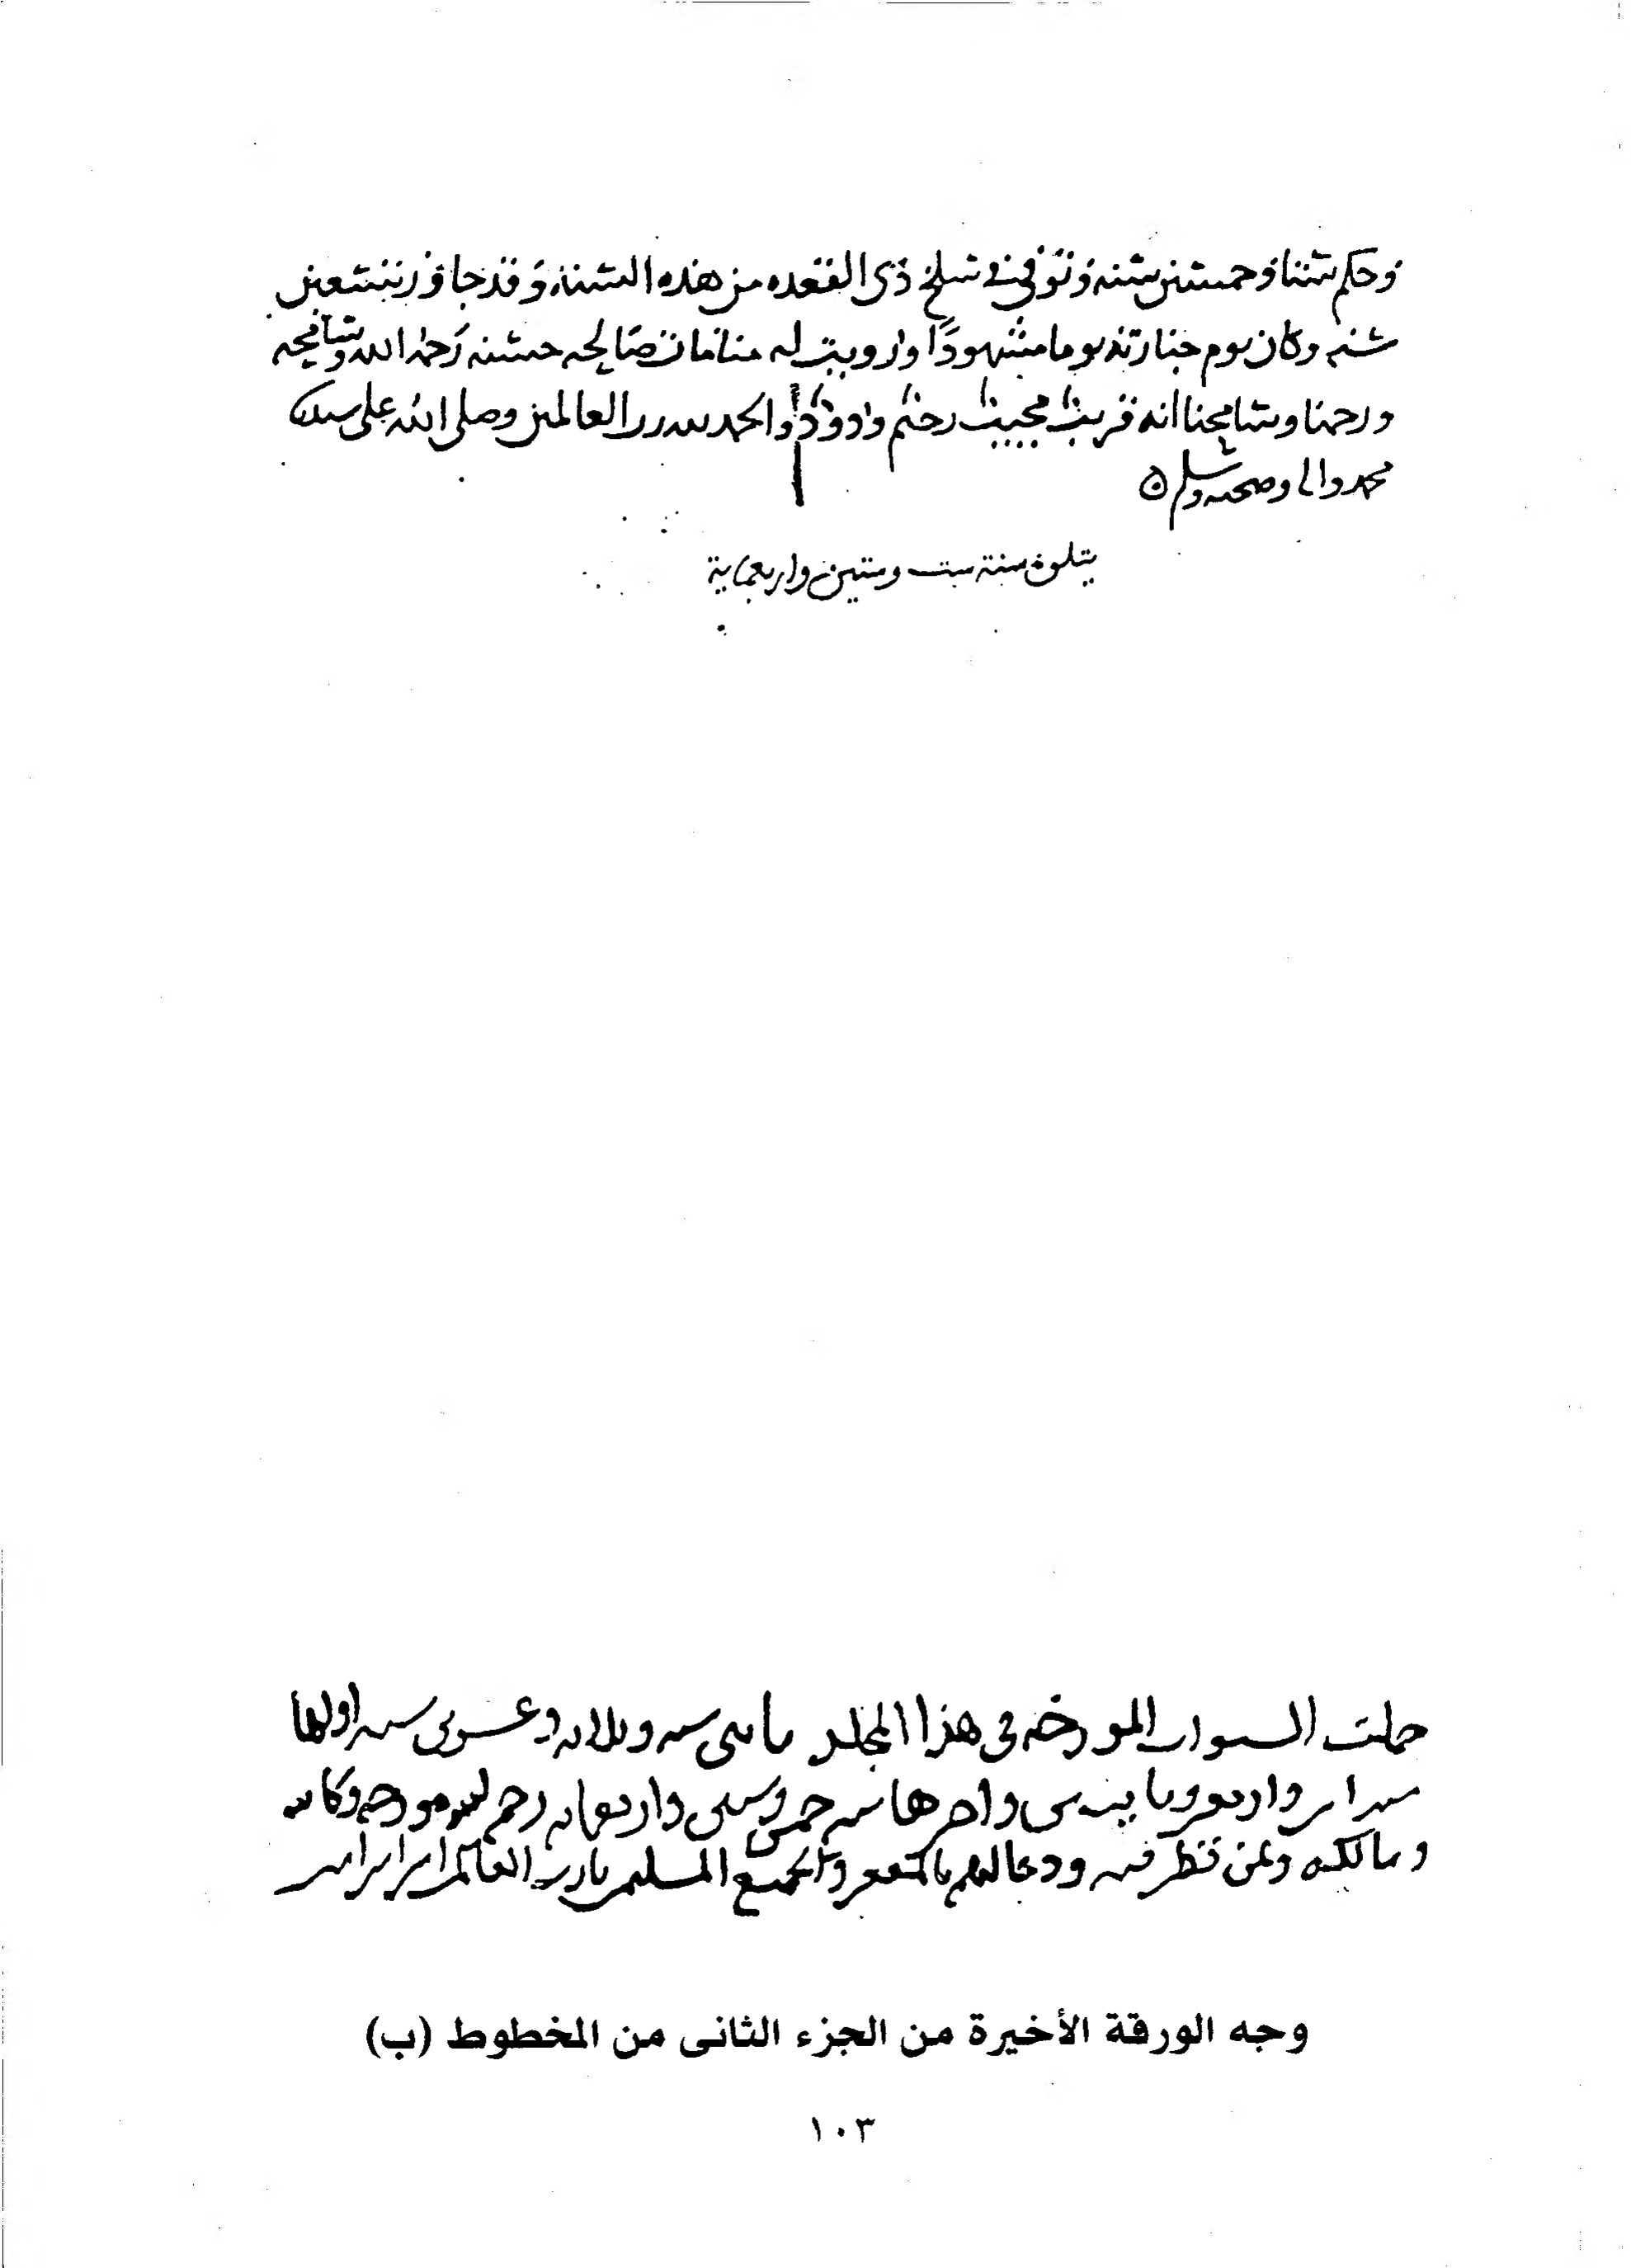 وحكم ستا وخمسين سنه وتوفي في سلخ ذى القعده من هذه السنة وقد جاوز تسعين
سنه وكان يوم جنازته يوما مشهودًا ورويت له منامات صالحه حسنه رحمه الله وسامحه
ورحمنا وسامحنا انه قريب مجيب رحيم ودود والحمد لله رب العالمين وصلى الله على سيدنا
محمد واله وصحبه وسلم ه
يتلوه سنة ست وستين واربعماية
جملت السنوات المورخه فى هذا المجلد مايتى سنه وثلاثه وعشرين سنه اولها
سنه وار بعين ومايتين واخرها سنه خمس وستين واربعمايه رحم الله مورخه وكاتبه
ومالكه ولمن نظر فيه ودعا لهم بالمغفره ولجميع المسلمين يارب العالمين امين امين امين
وجه الورقة الأخيرة من الجزء الثانى من المخطوط (ب)
١٠٣